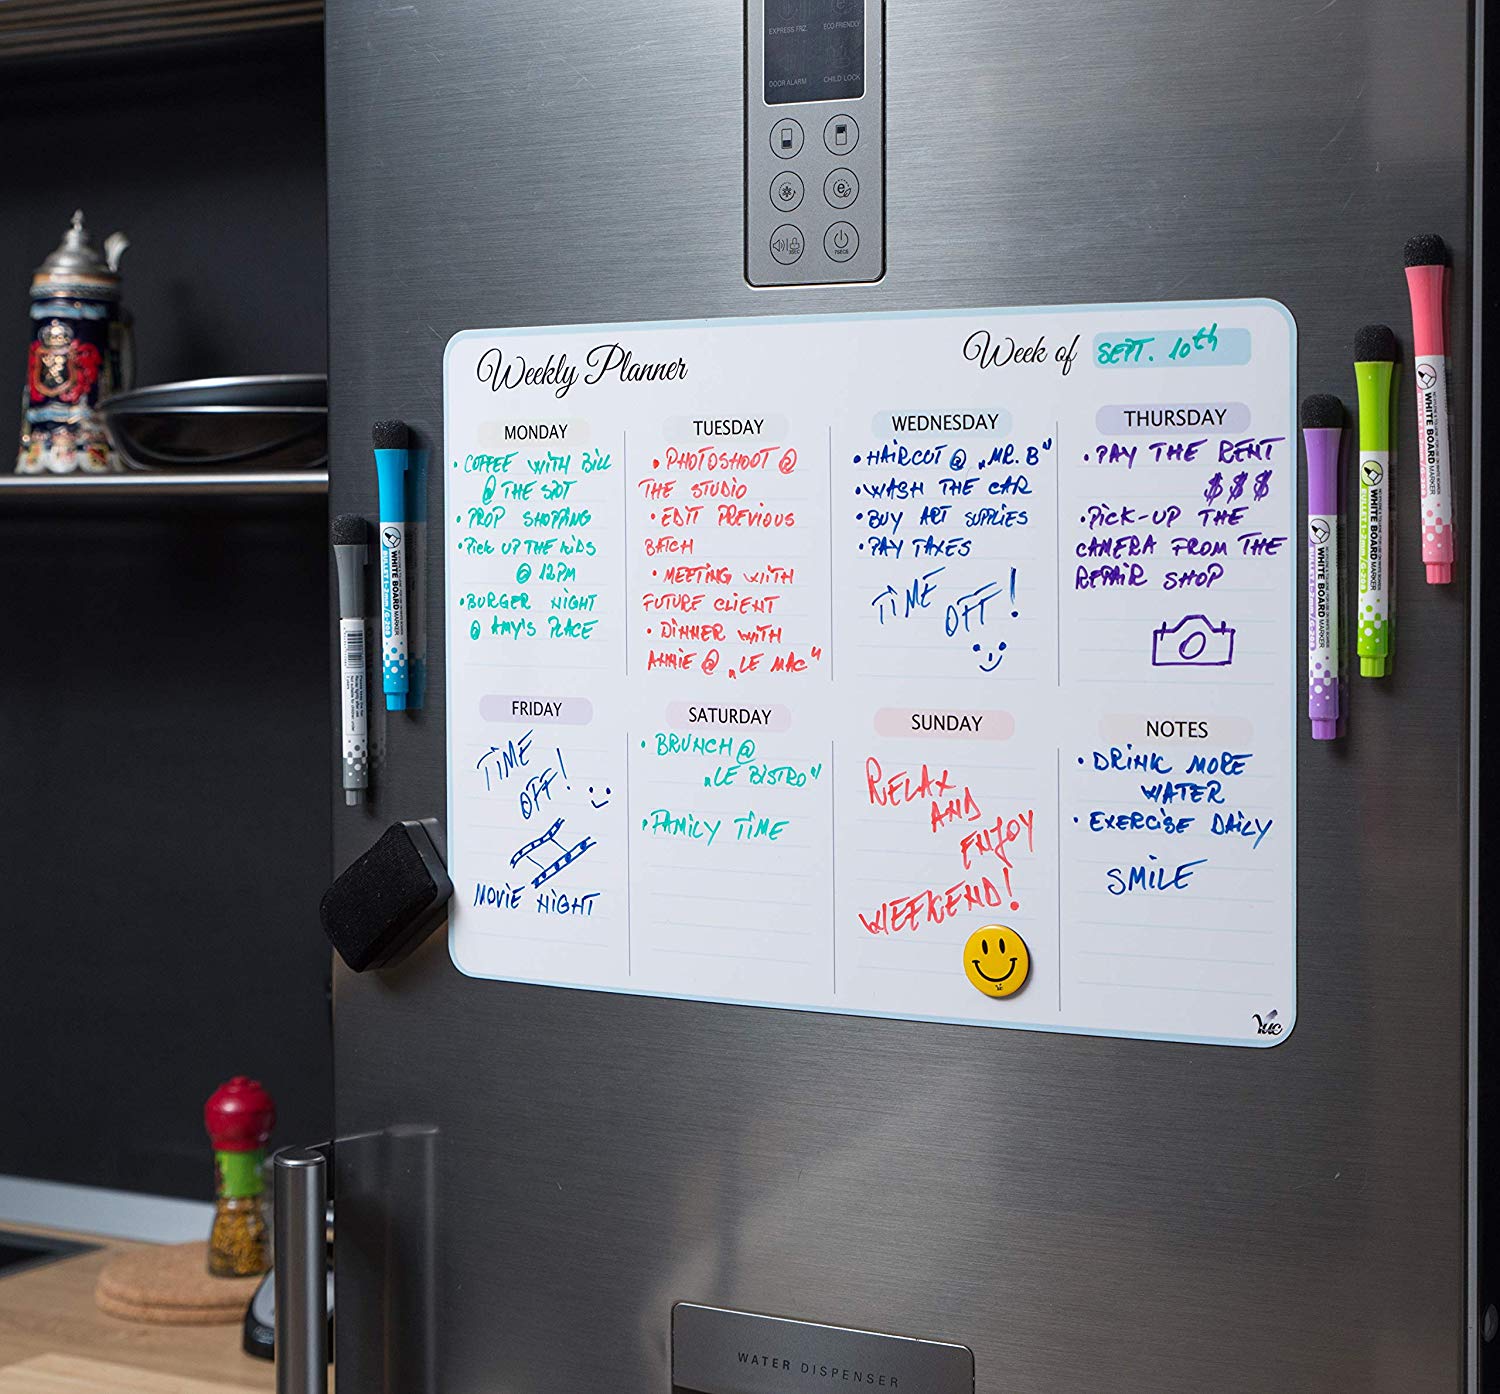 EXPRESS FRZ. ECO FRIENDLY
DOOR ALARM CHILD LOCK
Weekly Planner
Week of SEPT. 10th
MONDAY
• COFFEE WITH BILL
@ THE SPOT
• PROP SHOPPING
• PICK UP THE KIDS
@ 12PM
• BURGER NIGHT
@ AMY'S PLACE
TUESDAY
• PHOTOSHOOT @
THE STUDIO
• EDIT PREVIOUS
BATCH
• MEETING WITH
FUTURE CLIENT
• DINNER WITH
ANNIE @ „LE MAC"
WEDNESDAY
• HAIRCUT @ „MR. B"
• WASH THE CAR
• BUY ART SUPPLIES
• PAY TAXES
TIME OFF!
THURSDAY
• PAY THE RENT
$$$
• PICK-UP THE
CAMERA FROM THE
REPAIR SHOP
FRIDAY
TIME
OFF!
MOVIE NIGHT
SATURDAY
• BRUNCH @
„LE BISTRO"
• FAMILY TIME
SUNDAY
RELAX
AND
ENJOY
WEEKEND!
NOTES
• DRINK MORE
WATER
• EXERCISE DAILY
SMILE
WHITE BOARD MARKER
WHITE BOARD MARKER
WHITE BOARD MARKER
WHITE BOARD MARKER
WATER DISPENSER